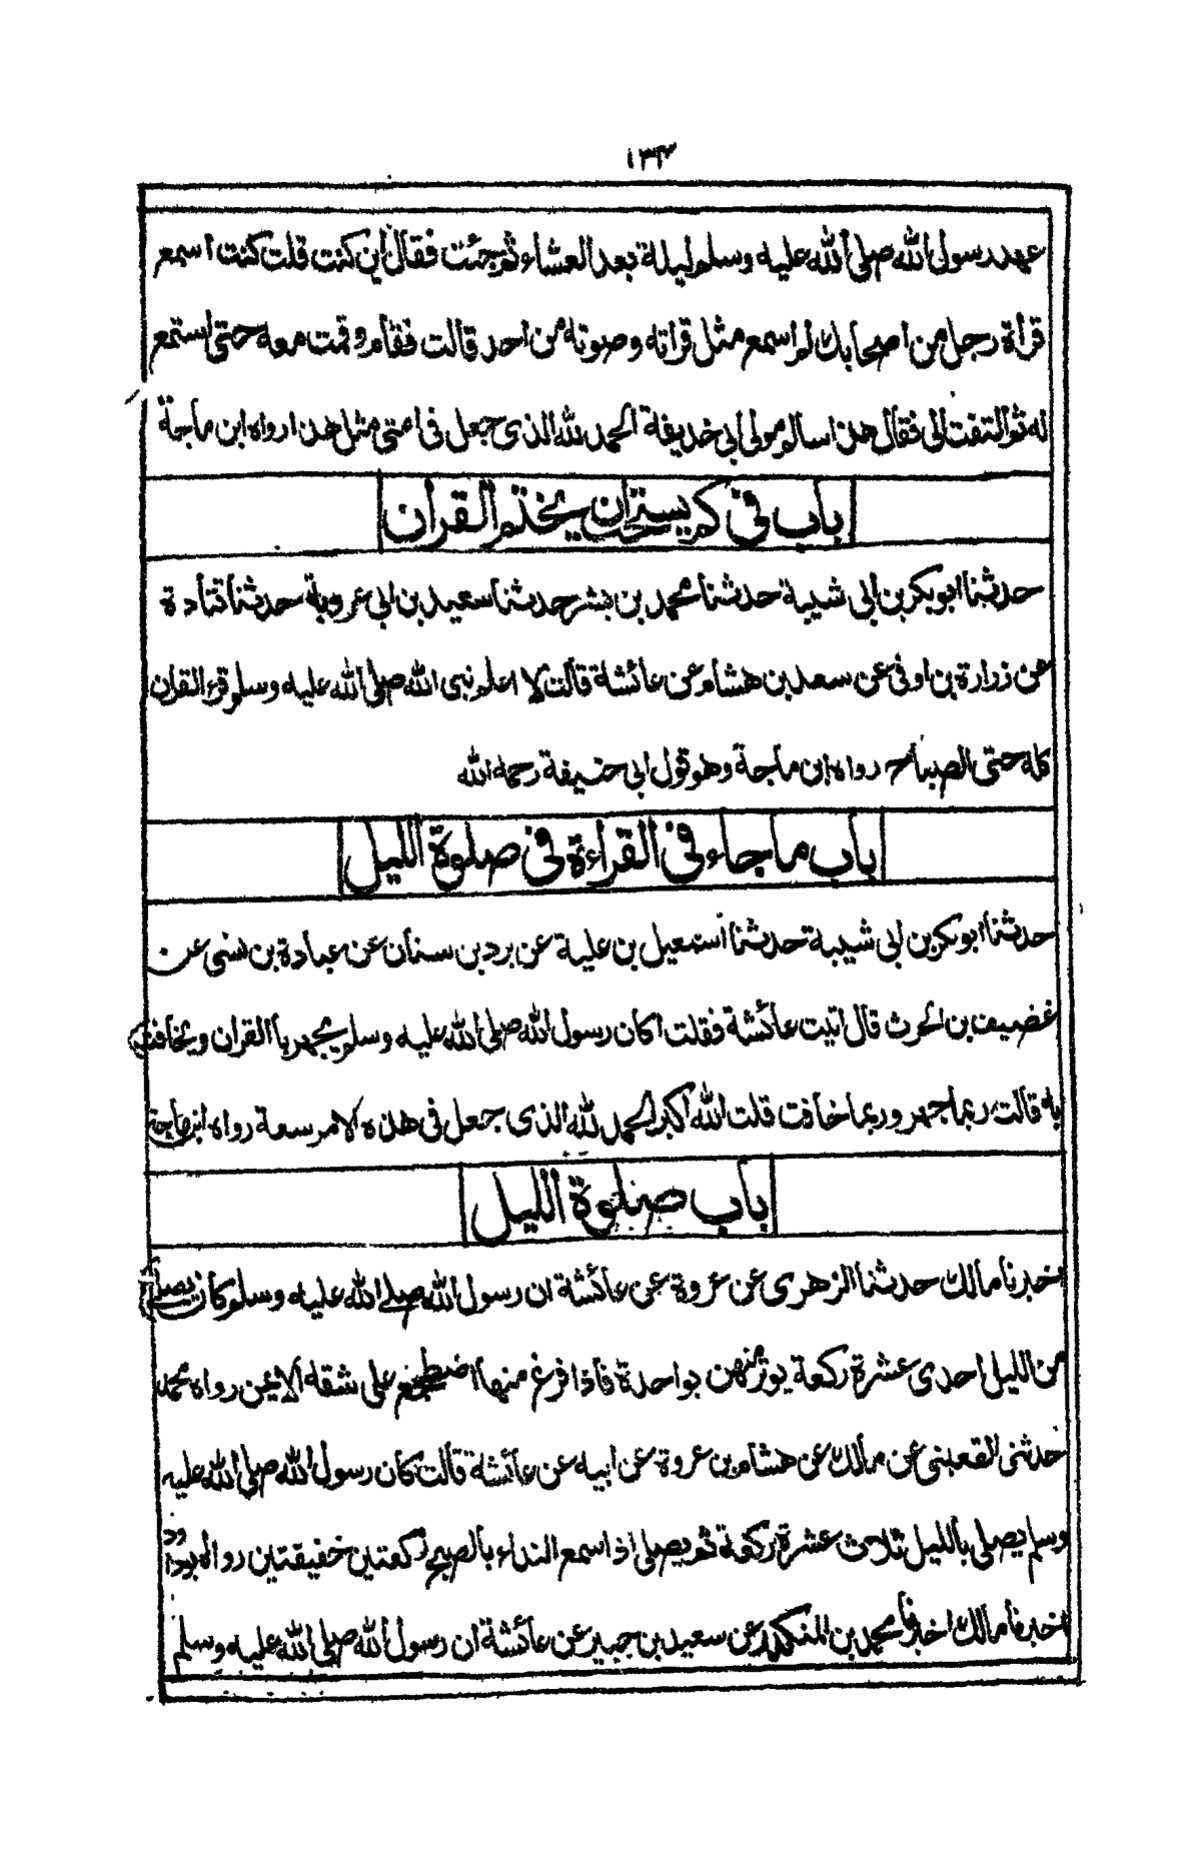 ١٣٣
عهد رسول الله صلى الله عليه وسلم ليلة بعد العشاء ثم جئت فقال اين كنت قلت كنت اسمع
قرأة رجل من اصحابك لم اسمع مثل قراته وصوته من احد قالت فقام وقمت معه حتى استمع
له ثم التفت الى فقال هذا سالم مولى ابى حذيفة الحمد لله الذى جعل فى امتى مثل هذا رواه ابن ماجة
باب فى كم يستحب ان يختم القرآن
حدثنا ابوبكر بن ابى شيبة حدثنا محمد بن بشر حدثنا سعيد بن ابى عروبة حدثنا قتادة
عن زرارة بن اوفى عن سعد بن هشام عن عائشة قالت لا اعلم نبى الله صلى الله عليه وسلم قرء القران
كله حتى الصباح رواه ابن ماجة وهو قول ابى حنيفة رحمه الله
باب ما جاء فى القراءة فى صلوة الليل
حدثنا ابوبكر بن ابى شيبة حدثنا اسمعيل بن علية عن برد بن سنان عن عبادة بن نسى عن
غضيف بن الحرث قال اتيت عائشة فقلت اكان رسول الله صلى الله عليه وسلم يجهر بالقران ويخافت
به قالت ربما جهر وربما خافت قلت الله اكبر الحمد لله الذى جعل فى هذه الامر سعة رواه ابن ماجة
باب صلوة الليل
اخبرنا مالك حدثنا الزهرى عن عروة عن عائشة ان رسول الله صلى الله عليه وسلم كان يصلى
من الليل احدى عشرة ركعة يوتر منهن بواحدة فاذا فرغ منها اضطجع على شقه الايمن رواه محمد
حدثنى القعبنى عن مالك عن هشام بن عروة عن ابيه عن عائشة قالت كان رسول الله صلى الله عليه
وسلم يصلى بالليل ثلاث عشرة ركعة ثم يصلى اذا سمع النداء بالصبح ركعتين خفيفتين رواه ابوداود
اخبرنا مالك اخبرنا محمد بن المنكدر عن سعيد بن جبير عن عائشة ان رسول الله صلى الله عليه وسلم